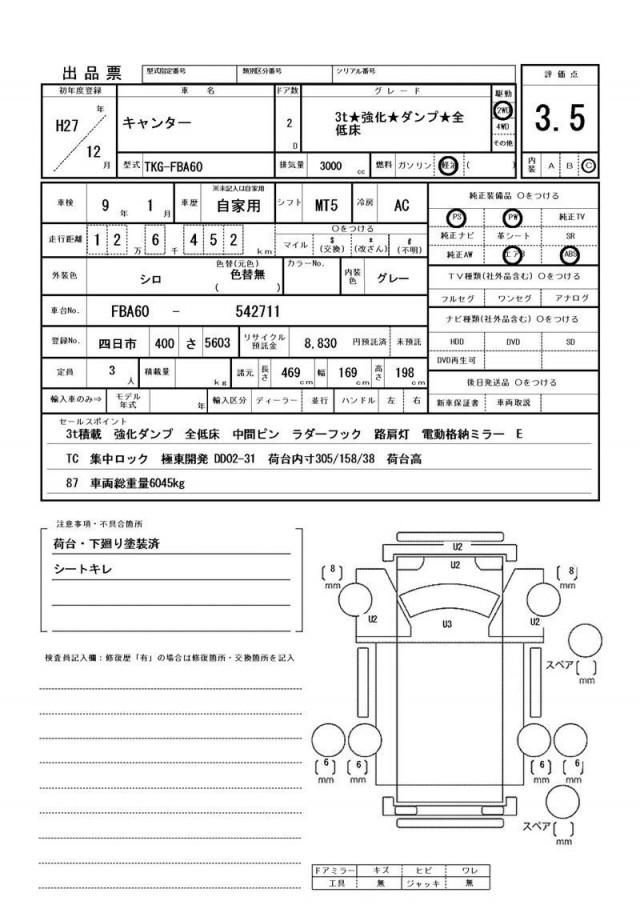 出品票 型式指定番号 類別区分番号 シリアル番号 評価点
初年度登録 車名 ドア数 グレード 駆動
H27年 キャンター 2D 3t★強化★ダンプ★全低床 2WD 4WD その他 3.5
12月 型式 TKG-FBA60 排気量 3000 cc 燃料 ガソリン 軽油 ( ) 内装 A B C
車検 9年 1月 車歴 ※未記入は自家用 自家用 シフト MT5 冷房 AC 純正装備品 ○をつける
走行距離 12万 6千 452 km ○をつける マイル $(交換) *(改ざん) #(不明) PS PW 純正TV
純正ナビ 革シート SR
純正AW エアB ABS
外装色 シロ 色替(元色) 色替無 ( ) カラーNo. 内装色 グレー TV種類(社外品含む) ○をつける
フルセグ ワンセグ アナログ
車台No. FBA60 - 542711 ナビ種類(社外品含む) ○をつける
登録No. 四日市 400 さ 5603 リサイクル預託金 8,830 円預託済 未預託 HDD DVD SD
DVD再生可
定員 3人 積載量 kg 諸元 長さ 469cm 幅 169cm 高さ 198cm 後日発送品 ○をつける
輸入車のみ⇒ モデル年式 年 輸入区分 ディーラー 並行 ハンドル 左 右 新車保証書 車両取説
セールスポイント
3t積載 強化ダンプ 全低床 中間ピン ラダーフック 路肩灯 電動格納ミラー E
TC 集中ロック 極東開発 DD02-31 荷台内寸305/158/38 荷台高
87 車両総重量6045kg
注意事項・不具合箇所
荷台・下廻り塗装済
シートキレ
検査員記入欄:修復歴「有」の場合は修復箇所・交換箇所を記入
U2
U2
8 mm 8 mm
U2 U3 U2
スペア [ ] mm
6 mm 6 mm 6 mm 6 mm
スペア [ ] mm
ドアミラー キズ ヒビ ワレ
工具 無 ジャッキ 無